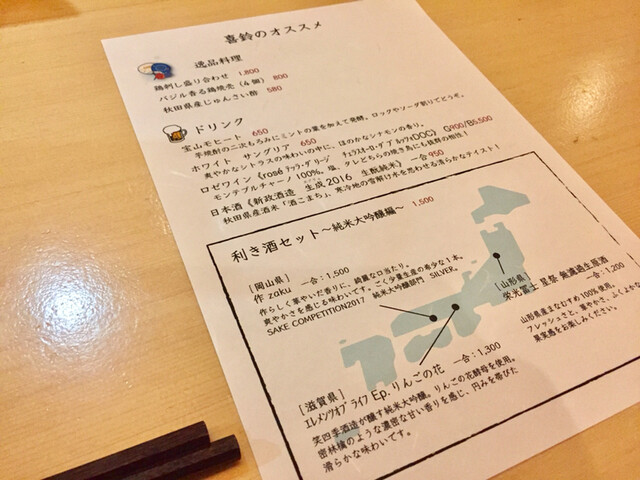 喜鈴のオススメ
逸品料理
鶏刺し盛り合わせ 1,800
バジル香る鶏焼売(4個) 800
秋田県産じゅんさい酢 580
ドリンク
宝山モヒート 650
芋焼酎の二次もろみにミントの葉を加えて発酵。ロックやソーダ割りでどうぞ。
ホワイト サングリア 650
爽やかなシトラスの味わいの中に、ほのかなシナモンの香り。
モンテプルチャーノ100%。塩、タレどちらの焼き鳥にも抜群の相性!
日本酒《新政酒造 生成2016 生酛純米》 一合950
秋田県産酒米「酒こまち」、寒冷地の雪解け水を思わせる清らかなテイスト!
利き酒セット~純米大吟醸編~ 1,500
[岡山県]
作 zaku 一合:1,500
作らしく華やいだ香りに、綺麗な口当たり。
爽やかさを感じる味わいです。ごく少量生産の希少な1本。
SAKE COMPETITION2017 純米大吟醸部門 SILVER。
[山形県]
栄光冨士 星祭 無濾過生原酒
一合:1,200
山形県産まなむすめ100%使用。
フレッシュさと、華やかさ、ふくよかな
果実感をお楽しみください。
[滋賀県]
エレメンツオブ ライフ Ep.りんごの花 一合:1,300
笑四季酒造が醸す純米大吟醸。りんごの花酵母を使用。
密林檎のような濃密な甘い香りを感じ、円みを帯びた
滑らかな味わいです。